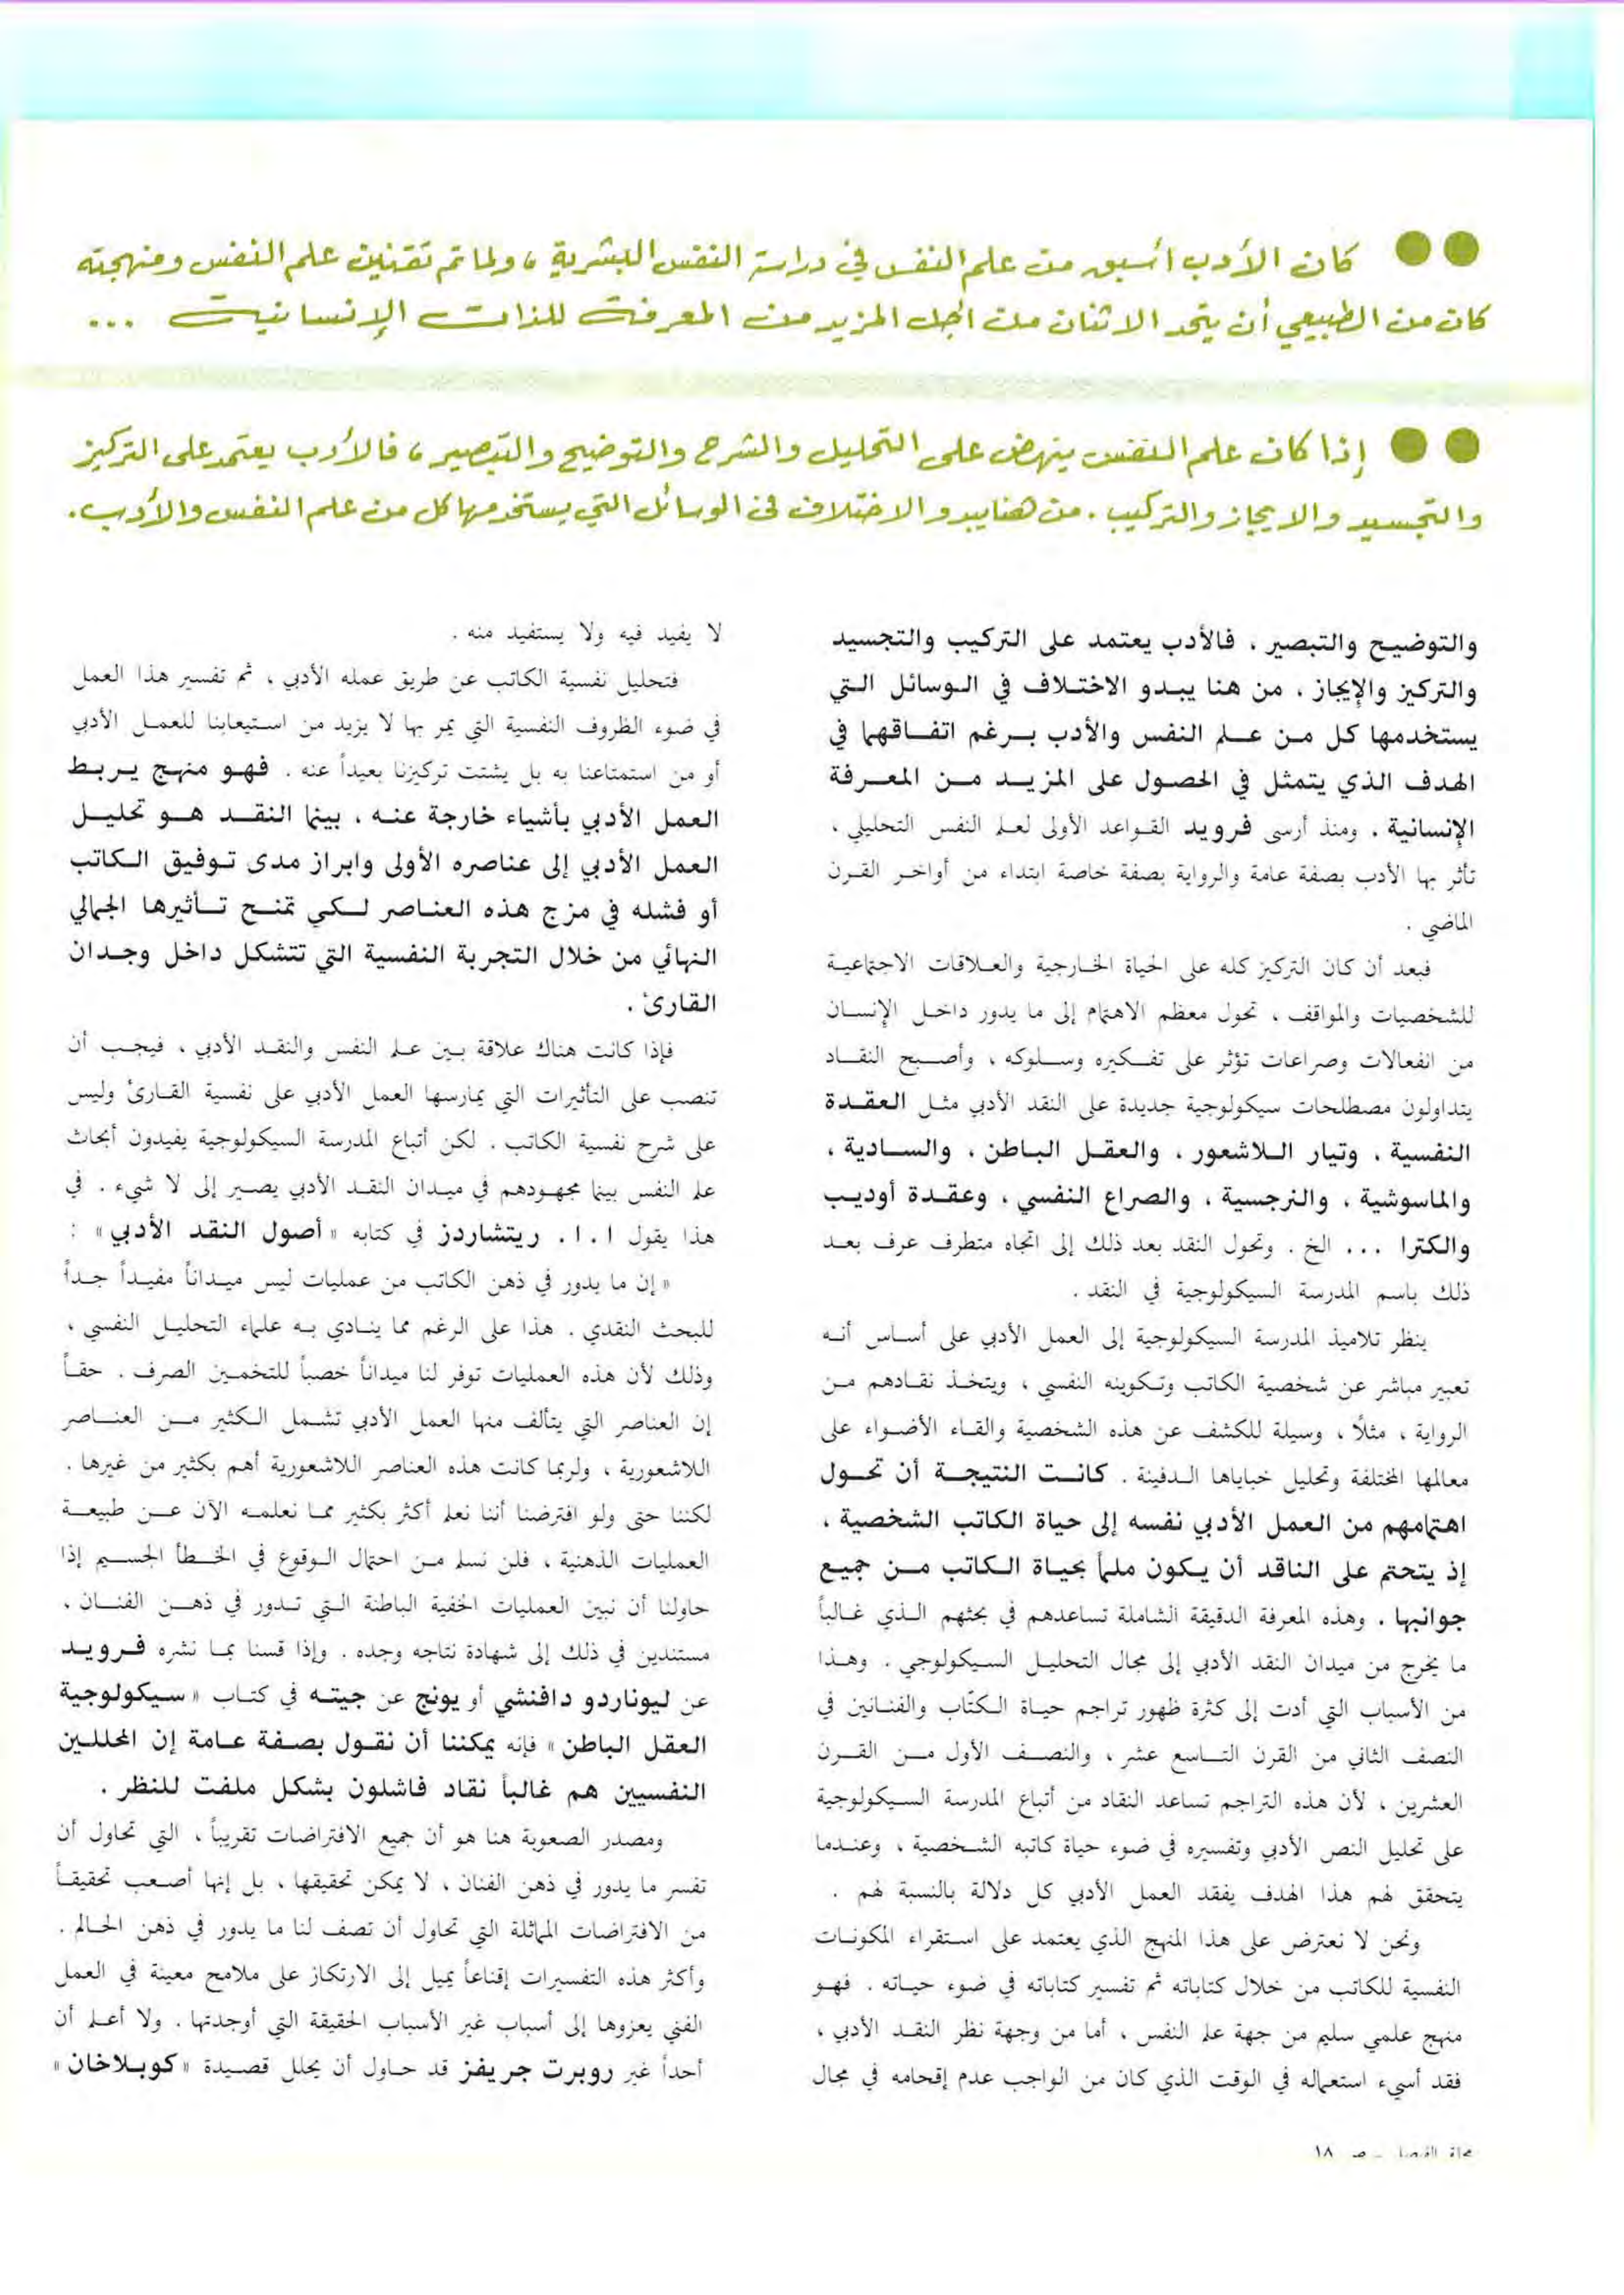 ●● كان الأدب أسبق من علم النفس في دراسة النفس البشرية ، ولما تم تقنين علم النفس ومنهجته
كان من الطبيعي أن يتحد الاثنان من أجل المزيد من المعرفة للذات الإنسانية ...
●● إذا كان علم النفس ينهض على التحليل والشرح والتوضيح والتبصير ، فالأدب يعتمد على التركيز
والتجسيد والايجاز والتركيب . من هنا يبدو الاختلاف في الوسائل التي يستخدمها كل من علم النفس والأدب .
والتوضيح والتبصير ، فالأدب يعتمد على التركيب والتجسيد
والتركيز والإيجاز . من هنا يبدو الاختلاف في الوسائل التي
يستخدمها كل من علم النفس والأدب برغم اتفاقهما في
الهدف الذي يتمثل في الحصول على المزيد من المعرفة
الإنسانية . ومنذ أرسى فرويد القواعد الأولى لعلم النفس التحليلي ،
تأثر بها الأدب بصفة عامة والرواية بصفة خاصة ابتداء من أواخر القرن
الماضي .
فبعد أن كان التركيز كله على الحياة الخارجية والعلاقات الاجتماعية
للشخصيات والمواقف ، تحول معظم الاهتمام إلى ما يدور داخل الإنسان
من انفعالات وصراعات تؤثر على تفكيره وسلوكه ، وأصبح النقاد
يتداولون مصطلحات سيكولوجية جديدة على النقد الأدبي مثل العقدة
النفسية ، وتيار اللاشعور ، والعقل الباطن ، والسادية ،
والماسوشية ، والنرجسية ، والصراع النفسي ، وعقدة أوديب
والكترا ... الخ . وتحول النقد بعد ذلك إلى اتجاه متطرف عرف بعد
ذلك باسم المدرسة السيكولوجية في النقد .
ينظر تلاميذ المدرسة السيكولوجية إلى العمل الأدبي على أساس أنه
تعبير مباشر عن شخصية الكاتب وتكوينه النفسي ، ويتخذ نقادهم من
الرواية ، مثلاً ، وسيلة للكشف عن هذه الشخصية والقاء الأضواء على
معالمها المختلفة وتحليل خباياها الدفينة . كانت النتيجة أن تحول
اهتمامهم من العمل الأدبي نفسه إلى حياة الكاتب الشخصية ،
إذ يتحتم على الناقد أن يكون ملماً بحياة الكاتب من جميع
جوانبها . وهذه المعرفة الدقيقة الشاملة تساعدهم في بحثهم الذي غالباً
ما يخرج من ميدان النقد الأدبي إلى مجال التحليل السيكولوجي . وهذا
من الأسباب التي أدت إلى كثرة ظهور تراجم حياة الكتّاب والفنانين في
النصف الثاني من القرن التاسع عشر ، والنصف الأول من القرن
العشرين ، لأن هذه التراجم تساعد النقاد من أتباع المدرسة السيكولوجية
على تحليل النص الأدبي وتفسيره في ضوء حياة كاتبه الشخصية ، وعندما
يتحقق لهم هذا الهدف يفقد العمل الأدبي كل دلالة بالنسبة لهم .
ونحن لا نعترض على هذا المنهج الذي يعتمد على استقراء المكونات
النفسية للكاتب من خلال كتاباته ثم تفسير كتاباته في ضوء حياته . فهو
منهج علمي سليم من جهة علم النفس ، أما من وجهة نظر النقد الأدبي ،
فقد أسيء استعماله في الوقت الذي كان من الواجب عدم إقحامه في مجال
لا يفيد فيه ولا يستفيد منه .
فتحليل نفسية الكاتب عن طريق عمله الأدبي ، ثم تفسير هذا العمل
في ضوء الظروف النفسية التي يمر بها لا يزيد من استيعابنا للعمل الأدبي
أو من استمتاعنا به بل يشتت تركيزنا بعيداً عنه . فهو منهج يربط
العمل الأدبي بأشياء خارجة عنه ، بينما النقد هو تحليل
العمل الأدبي إلى عناصره الأولى وابراز مدى توفيق الكاتب
أو فشله في مزج هذه العناصر لكي تمنح تأثيرها الجمالي
النهائي من خلال التجربة النفسية التي تتشكل داخل وجدان
القارئ .
فإذا كانت هناك علاقة بين علم النفس والنقد الأدبي ، فيجب أن
تنصب على التأثيرات التي يمارسها العمل الأدبي على نفسية القارئ وليس
على شرح نفسية الكاتب . لكن أتباع المدرسة السيكولوجية يفيدون أبحاث
علم النفس بينما مجهودهم في ميدان النقد الأدبي يصير إلى لا شيء . في
هذا يقول ا . ا . ريتشاردز في كتابه « أصول النقد الأدبي » :
« إن ما يدور في ذهن الكاتب من عمليات ليس ميداناً مفيداً جداً
للبحث النقدي . هذا على الرغم مما ينادي به علماء التحليل النفسي ،
وذلك لأن هذه العمليات توفر لنا ميداناً خصباً للتخمين الصرف . حقاً
إن العناصر التي يتألف منها العمل الأدبي تشمل الكثير من العناصر
اللاشعورية ، ولربما كانت هذه العناصر اللاشعورية أهم بكثير من غيرها .
لكننا حتى ولو افترضنا أننا نعلم أكثر بكثير مما نعلمه الآن عن طبيعة
العمليات الذهنية ، فلن نسلم من احتمال الوقوع في الخطأ الجسيم إذا
حاولنا أن نبين العمليات الخفية الباطنة التي تدور في ذهن الفنان ،
مستندين في ذلك إلى شهادة نتاجه وحده . وإذا قسنا بما نشره فرويد
عن ليوناردو دافنشي أو يونج عن جيته في كتاب « سيكولوجية
العقل الباطن » فإنه يمكننا أن نقول بصفة عامة إن المحللين
النفسيين هم غالباً نقاد فاشلون بشكل ملفت للنظر .
ومصدر الصعوبة هنا هو أن جميع الافتراضات تقريباً ، التي تحاول أن
تفسر ما يدور في ذهن الفنان ، لا يمكن تحقيقها ، بل إنها أصعب تحقيقاً
من الافتراضات المماثلة التي تحاول أن تصف لنا ما يدور في ذهن الحالم .
وأكثر هذه التفسيرات إقناعاً يميل إلى الارتكاز على ملامح معينة في العمل
الفني يعزوها إلى أسباب غير الأسباب الحقيقة التي أوجدتها . ولا أعلم أن
أحداً غير روبرت جريفز قد حاول أن يحلل قصيدة « كوبلاخان »
مجلة الفيصل - ص ١٨